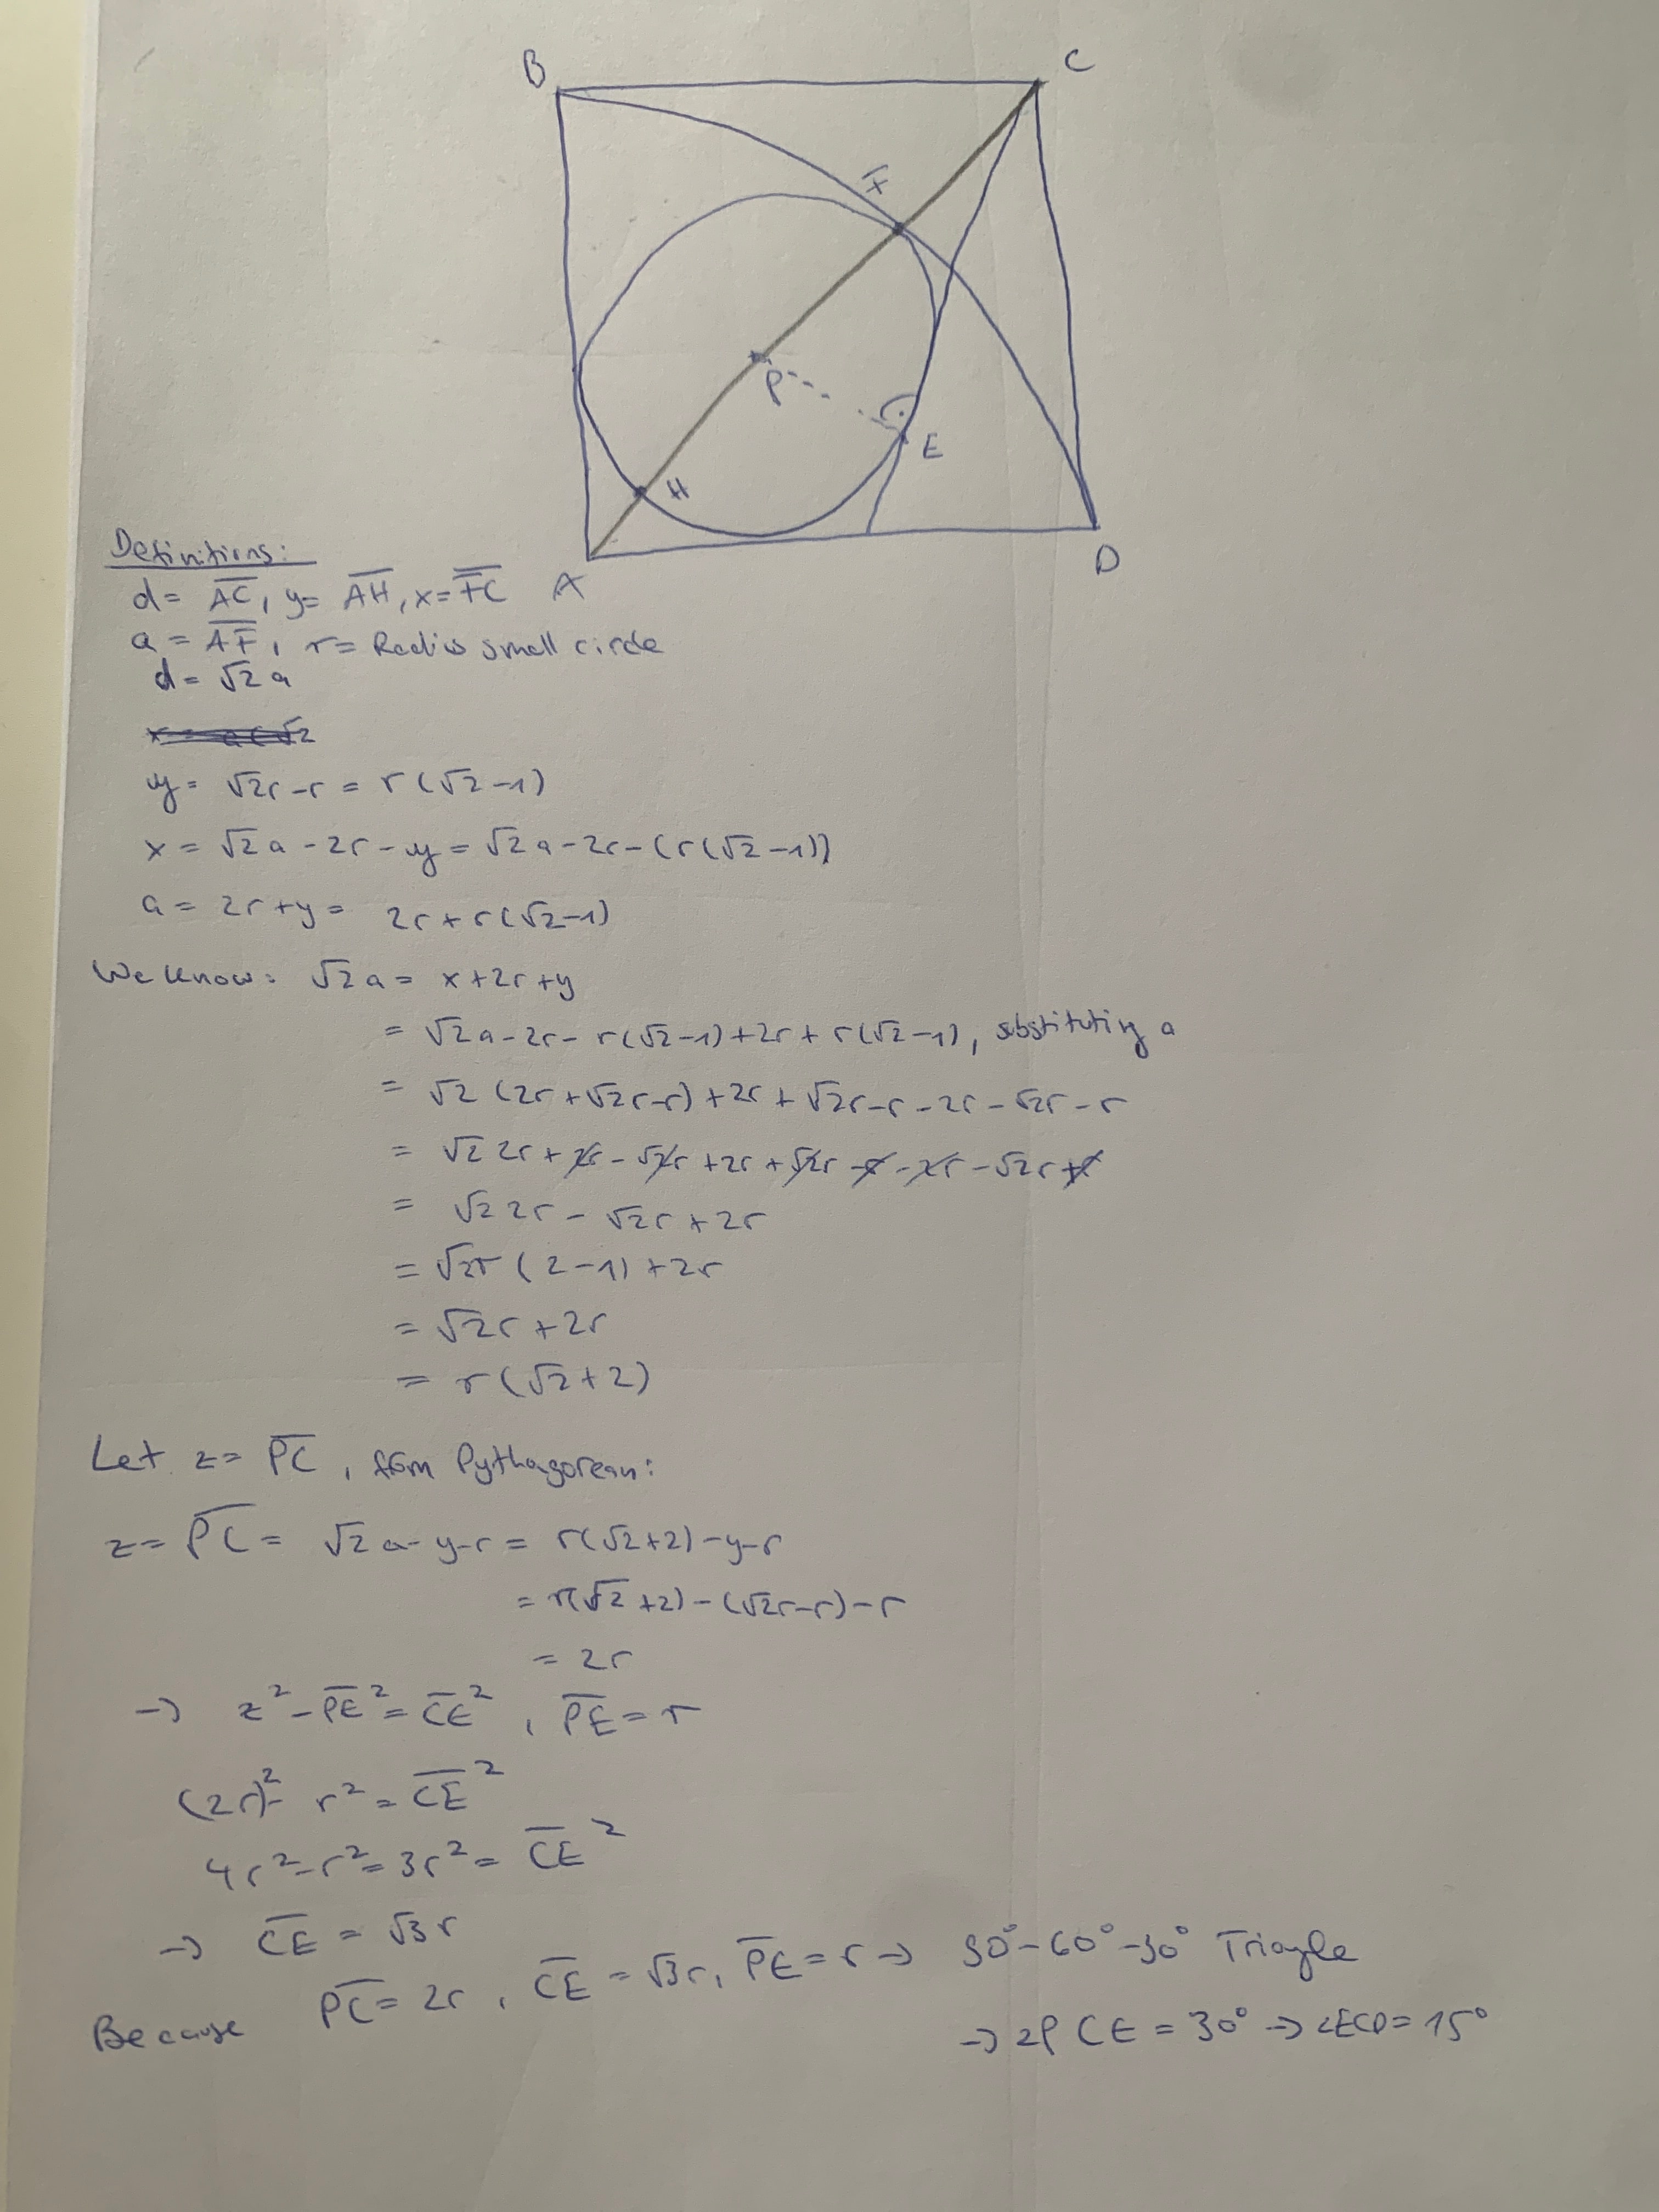 B
C
F
P
E
H
A
D
Definitions:
d = \overline{AC}, y = \overline{AH}, x = \overline{FC}
a = \overline{AF}, r = Radius small circle
d = √2 a
y = √2r - r = r(√2-1)
x = √2a - 2r - y = √2a - 2r - (r(√2-1))
a = 2r + y = 2r + r(√2-1)
We know: √2a = x + 2r + y
= √2a - 2r - r(√2-1) + 2r + r(√2-1), substituting a
= √2 (2r + √2r - r) + 2r + √2r - r - 2r - √2r - r
= √2 2r + 2r - √2r + 2r + √2r - r - 2r - √2r + r
= √2 2r - √2r + 2r
= √2r (2-1) + 2r
= √2r + 2r
= r(√2+2)
Let z = \overline{PC}, from Pythagorean:
z = \overline{PC} = √2a - y - r = r(√2+2) - y - r
= r(√2+2) - (√2r - r) - r
= 2r
→ z² - \overline{PE}² = \overline{CE}², \overline{PE} = r
(2r)² - r² = \overline{CE}²
4r² - r² = 3r² = \overline{CE}²
→ \overline{CE} = √3 r
Because \overline{PC} = 2r, \overline{CE} = √3r, \overline{PE} = r → 30°-60°-90° Triagle
→ ∠PCE = 30° → ∠ECD = 15°